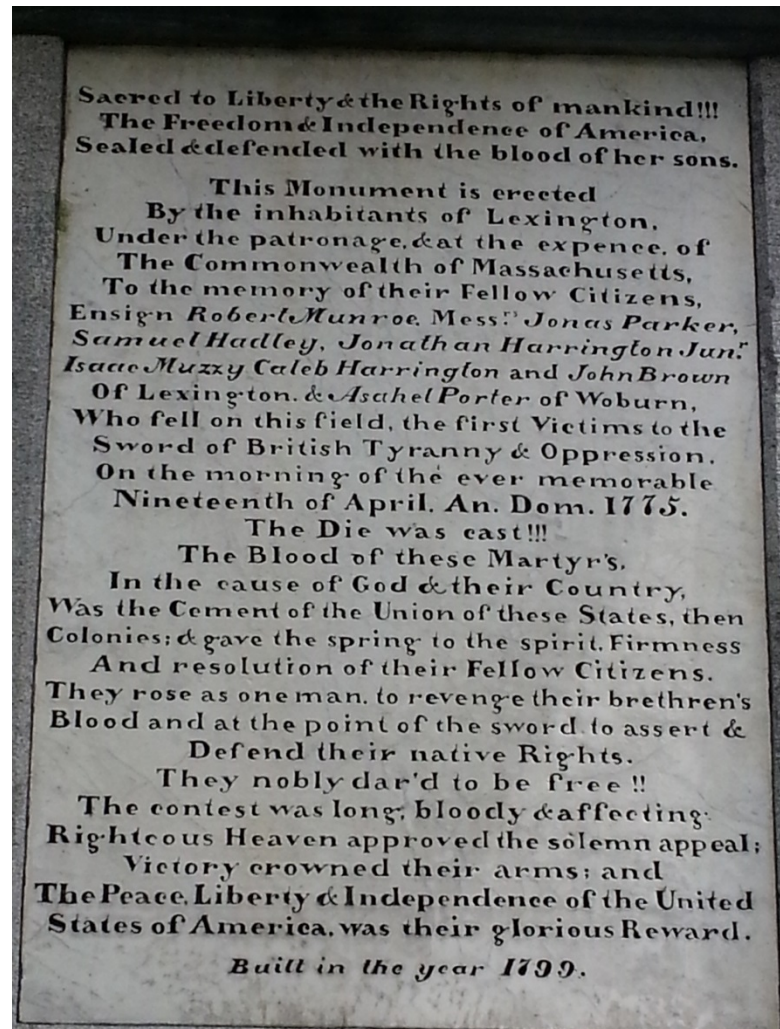 Sacred to Liberty & the Rights of mankind!!!
The Freedom & Independence of America,
Sealed & defended with the blood of her sons.
This Monument is erected
By the inhabitants of Lexington,
Under the patronage, & at the expence, of
The Commonwealth of Massachusetts,
To the memory of their Fellow Citizens,
Ensign Robert Munroe, Messrs. Jonas Parker,
Samuel Hadley, Jonathan Harrington Junr.
Isaac Muzzy Caleb Harrington and John Brown
Of Lexington, & Asahel Porter of Woburn,
Who fell on this field, the first Victims to the
Sword of British Tyranny & Oppression,
On the morning of the ever memorable
Nineteenth of April, An. Dom. 1775.
The Die was cast!!!
The Blood of these Martyr's,
In the cause of God & their Country,
Was the Cement of the Union of these States, then
Colonies; & gave the spring to the spirit, Firmness
And resolution of their Fellow Citizens.
They rose as one man, to revenge their brethren's
Blood and at the point of the sword to assert &
Defend their native Rights.
They nobly dar'd to be free!!
The contest was long, bloody & affecting.
Righteous Heaven approved the solemn appeal;
Victory crowned their arms; and
The Peace, Liberty & Independence of the United
States of America, was their glorious Reward.
Built in the year 1799.